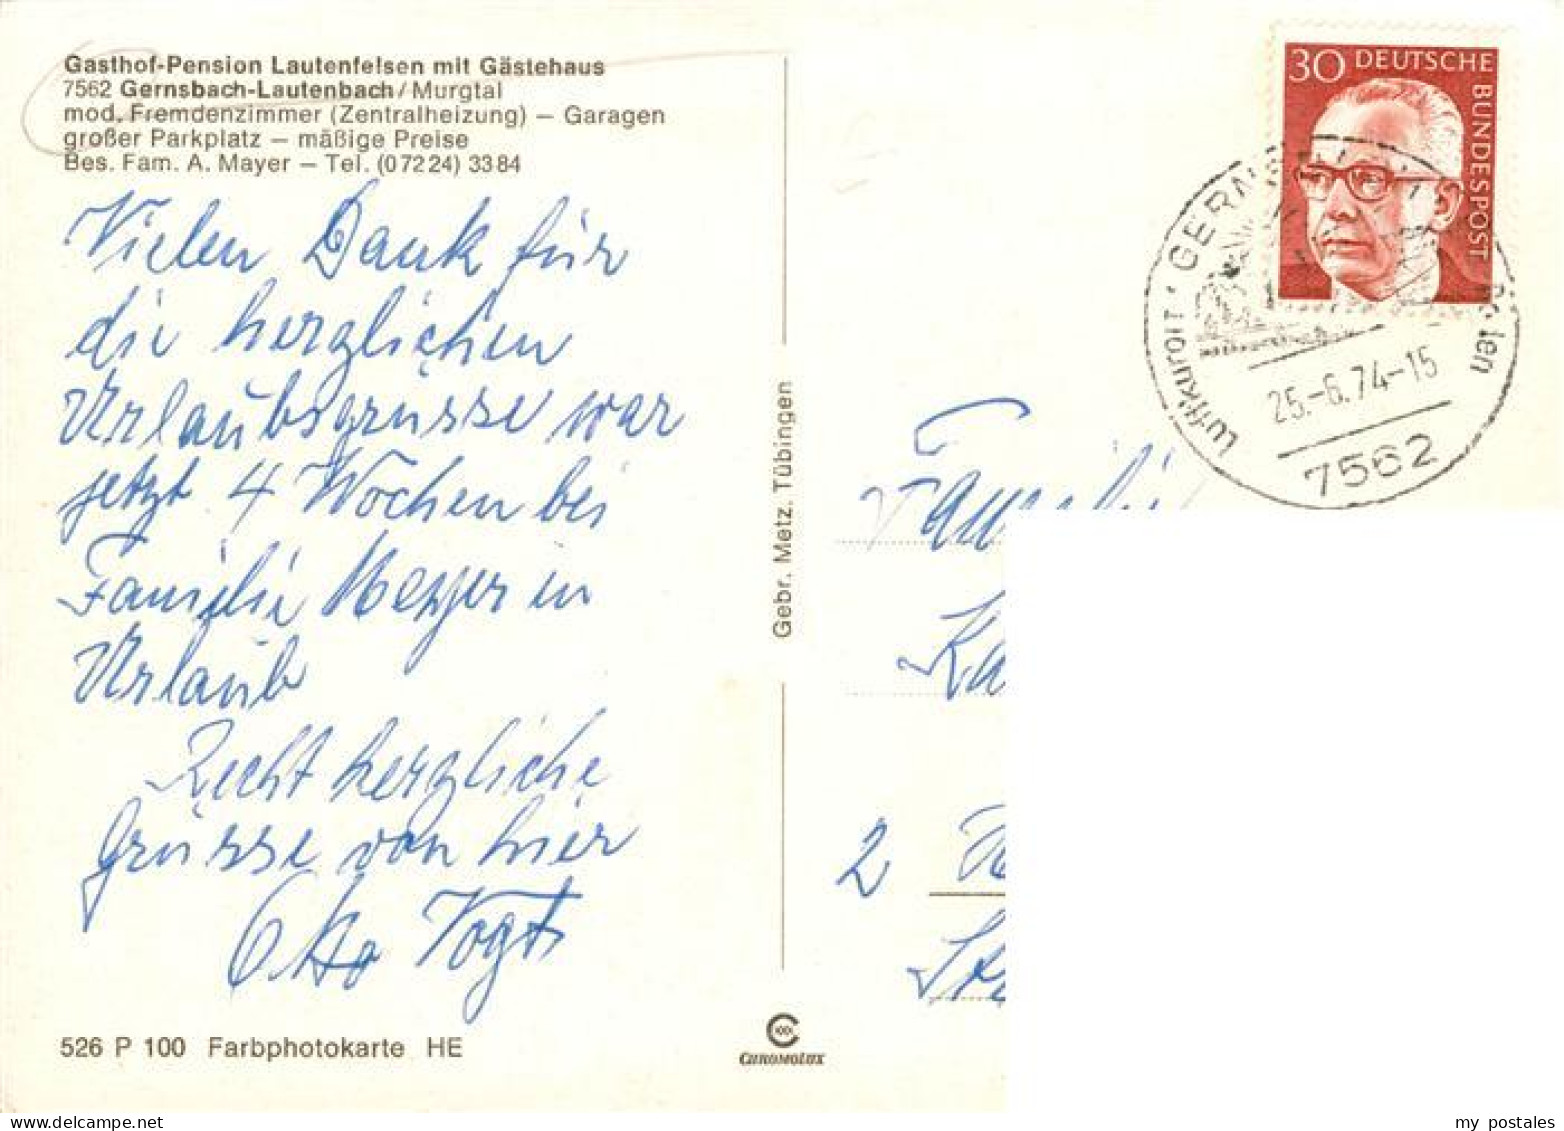 Gasthof-Pension Lautenfelsen mit Gästehaus
7562 Gernsbach-Lautenbach/Murgtal
mod. Fremdenzimmer (Zentralheizung) – Garagen
großer Parkplatz – mäßige Preise
Bes. Fam. A. Mayer – Tel. (07224) 3384
Vielen Dank für
die herzlichen
Urlaubsgrüsse war
jetzt 4 Wochen bei
Familie Meyer in
Urlaub
Recht herzliche
Grüsse von hier
Otto Vogt
526 P 100 Farbphotokarte HE
Gebr. Metz, Tübingen
CHROMOLUX
30 DEUTSCHE
BUNDESPOST
Luftkurort
25.-6.74-15
7562
Familie
2
my postales